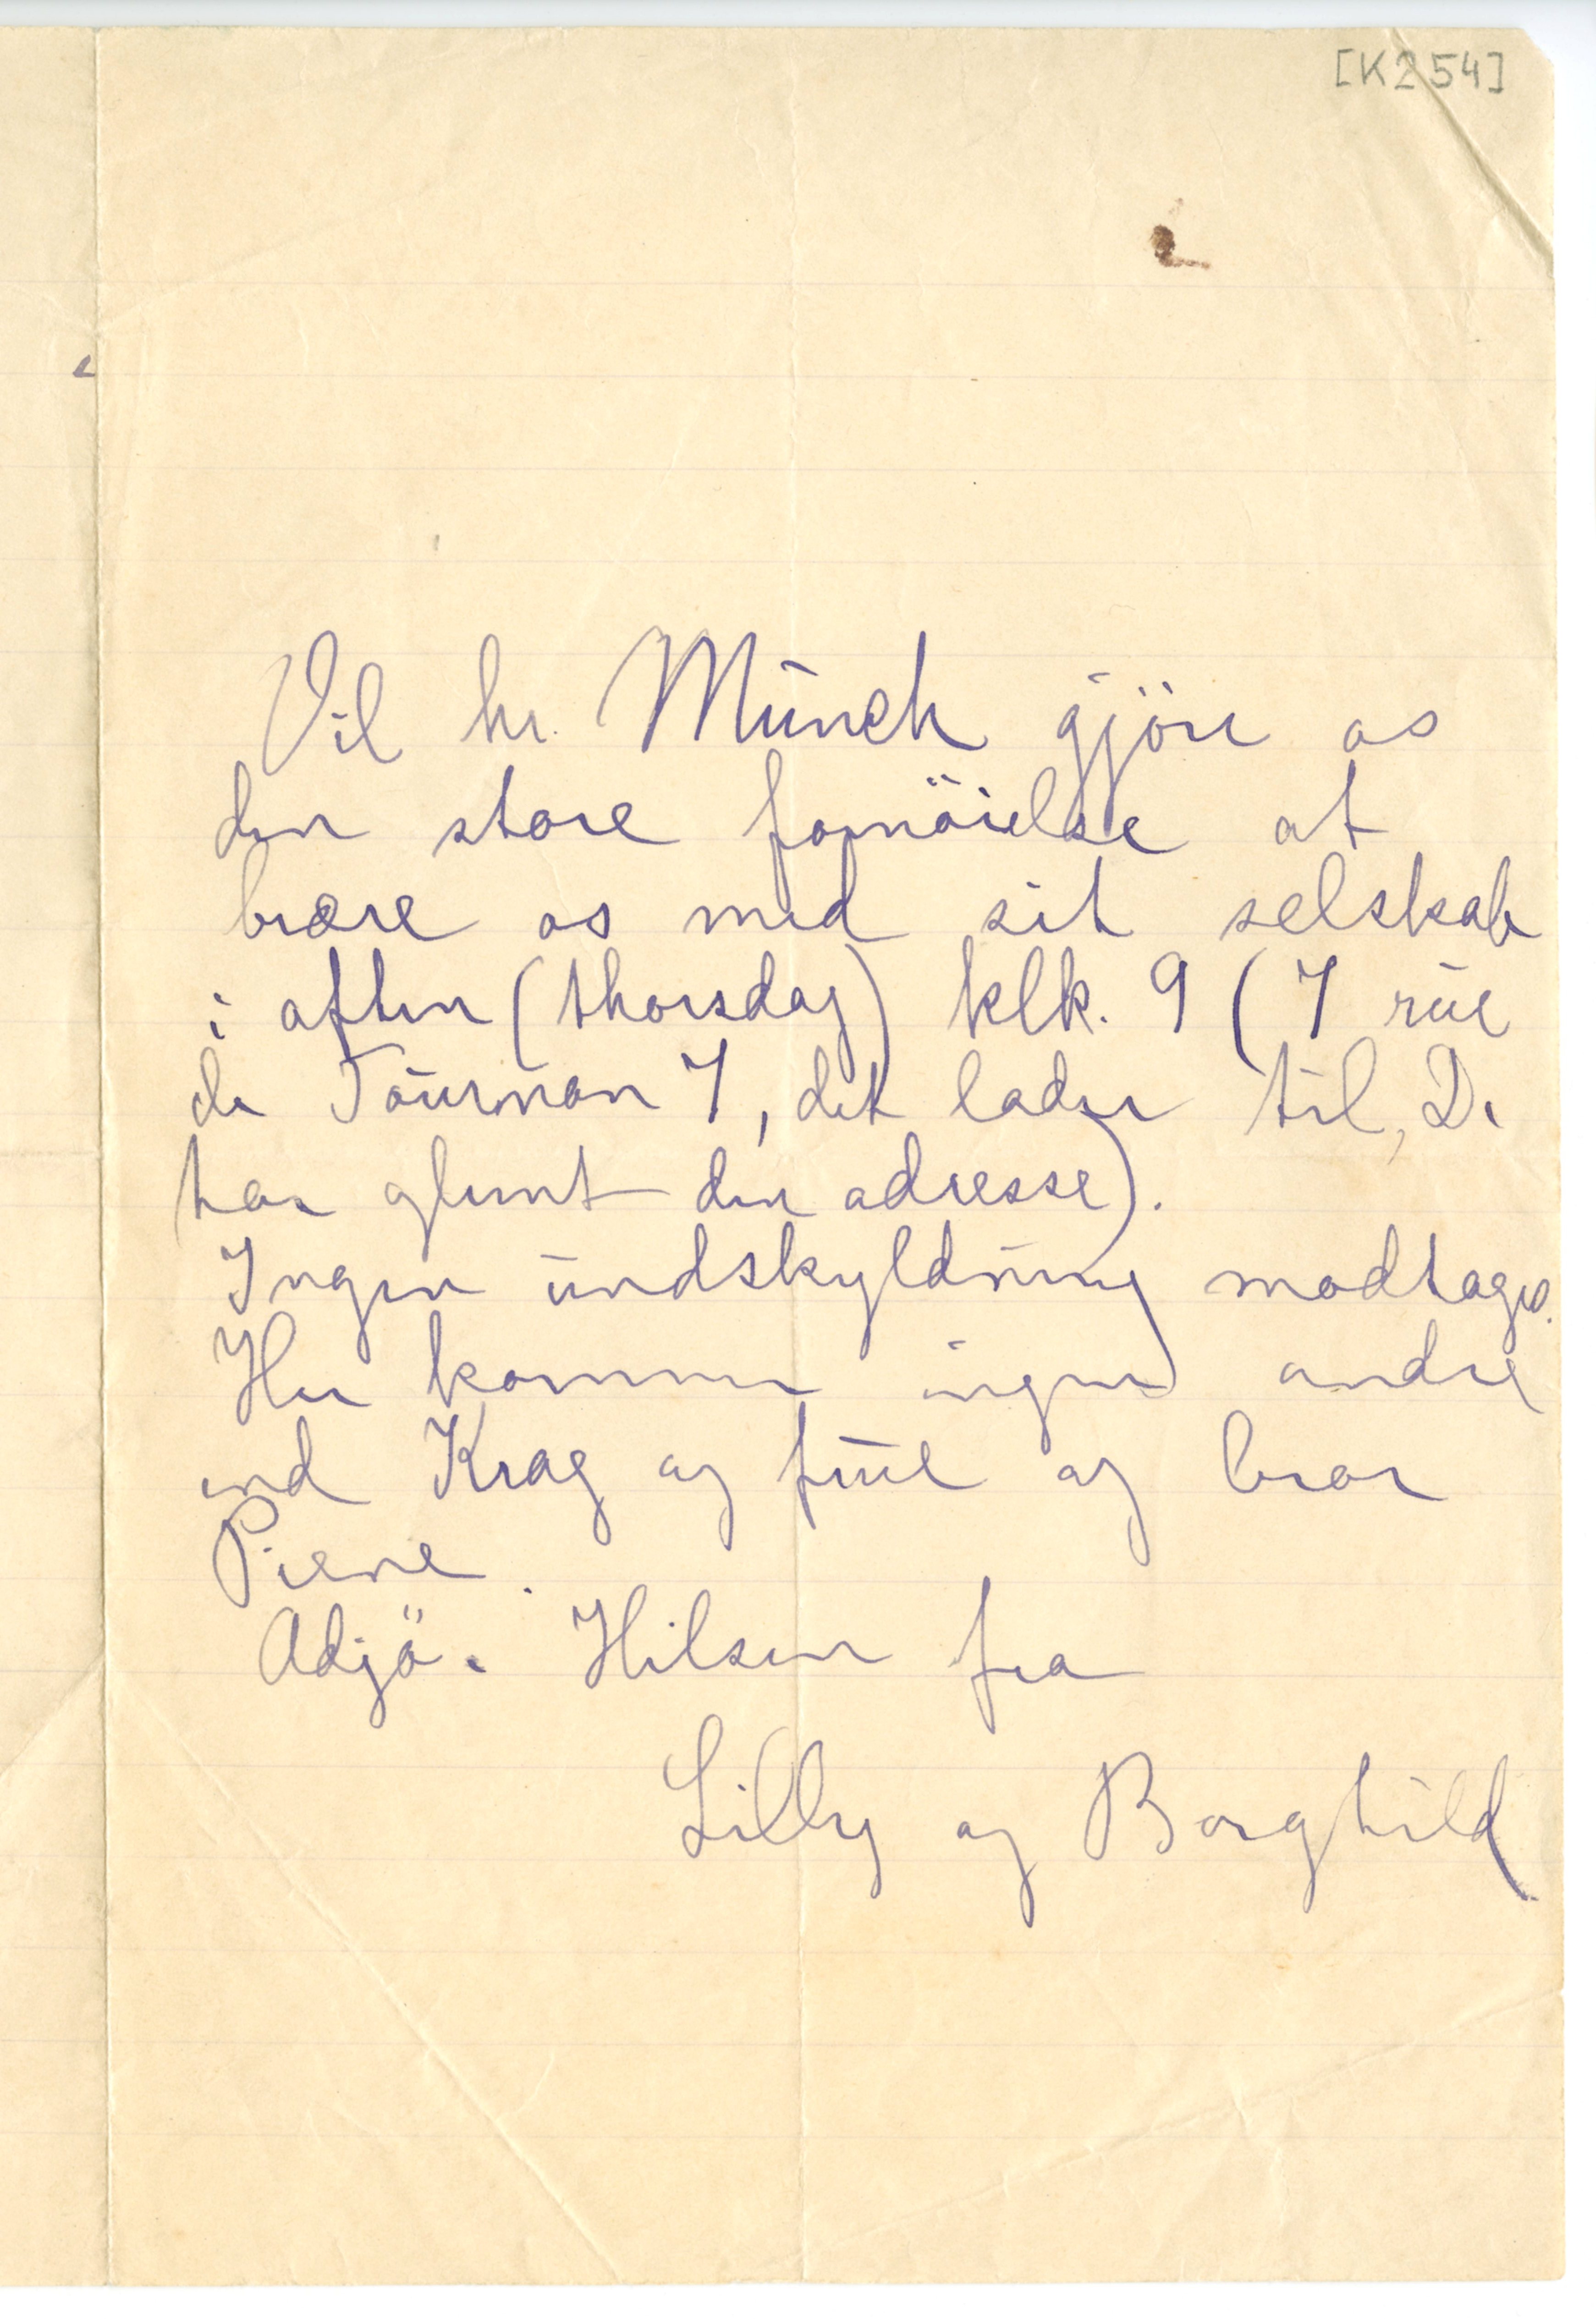 [K254]
Vil hr. Munch gjöre os
den store fornöielse at
beære os med sit selskab
i aften (thorsdag) klk. 9 (7 rue
de Tournon 7, det lader til, De
har glemt den adresse).
Ingen undskyldning modtages.
Her kommer ingen andre
end Krag og frue og bror
Piene.
Adjö. Hilsen fra
Lilly og Borghild